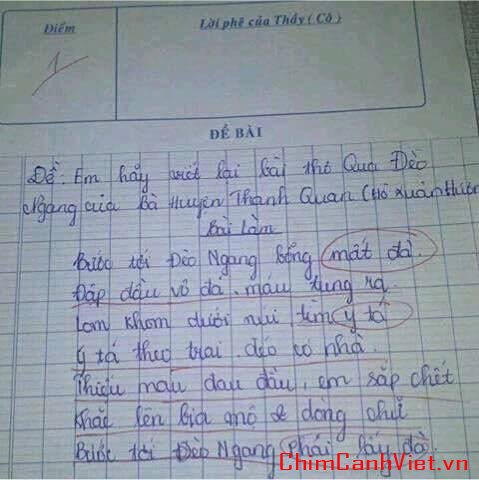 Điểm
Lời phê của Thầy (Cô)
1
ĐỀ BÀI
Đề: Em hãy viết lại bài thơ Qua Đèo
Ngang của Bà Huyện Thanh Quan (Hồ Xuân Hương
Bài làm
Bước tới Đèo Ngang bỗng mất đà.
Đập đầu vô đá, máu tung ra
Lom khom dưới núi tìm y tá
Y tá theo trai đéo có nhà.
Thiếu máu đau đầu, em sắp chết
Khắc lên bia mộ 2 dòng chữ
Bước tới Đèo Ngang phải lấy đà.
ChimCanhViet.vn